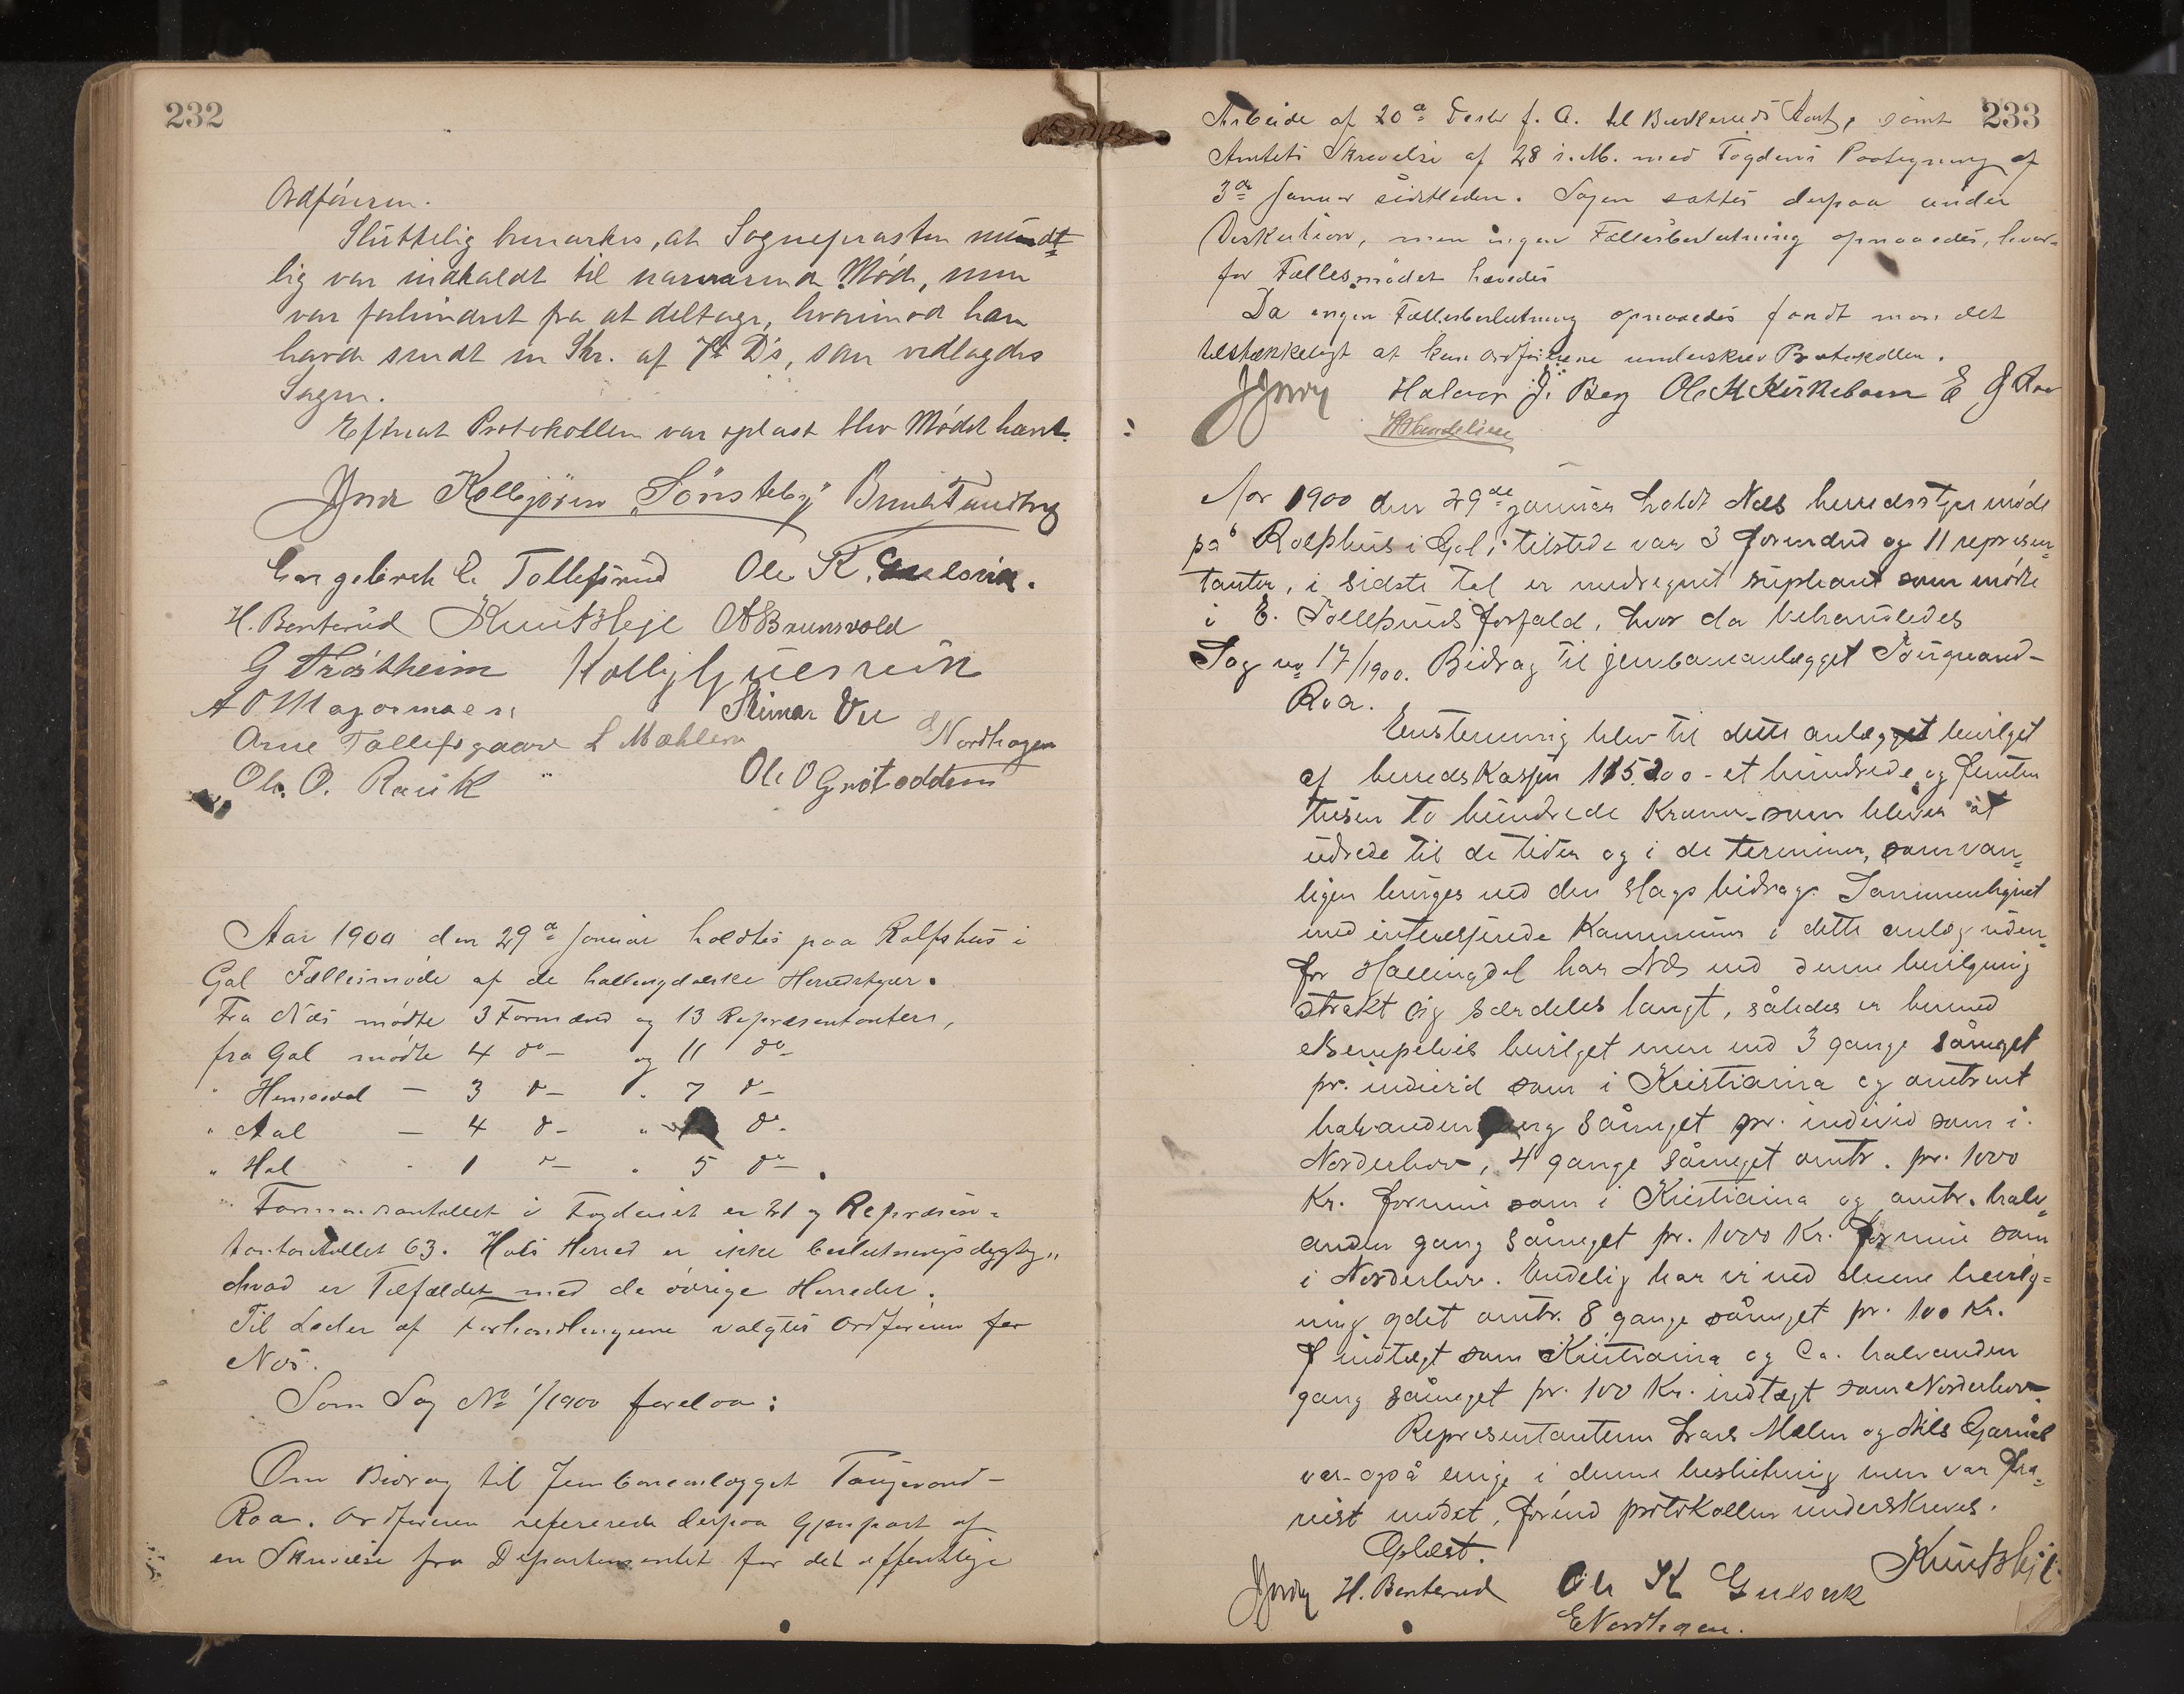 232
Ordføreren.
Sluttelig bemærkes, at Sognepræsten mundt=
lig var indkaldt til nærværende Møde, men
var forhindret fra at deltage, hvorimod han
havde sendt en Skr. af 7de Ds, som vedlagdes
Sagen.
Efterat Protokollen var oplæst blev Mødet hævet.
Kolbjörn Sönsteby
Engebret E Tollefsrud Ole K.
H. Benterud Knut Sleje A Brunsvold
G Trøstheim
Steinar Vii E Nordhagen
Arne Tollefsgaard L Mæhlen
Ole. O. Rauk Ole O Grøtoddem
Aar 1900 den 29de Januar holdtes paa Rolfshus i
Gol Fællesmøde af de hallingdalske Herredstyrer.
Fra Næs mødte 3 Formænd og 13 Repræsentanter,
fra Gol mødte 4 do – og 11 do –
" Hemsedal – 3 do – " 7 do –
" Aal – 4 do – " do –
" Hol – 1 do – " 5 do – .
Formandsantallet i Fogderiet er 21 og Repræsen=
tantantallet 63. Hols Herred er ikke beslutningsdygtig,
hvad er Tilfældet med de øvrige Herreder.
Til Leder af Forhandlingerne valgtes Ordføreren for
Næs.
Som Sag No 1/1900 forelaa:
Om Bidrag til Jernbaneanlægget Taugevand–
Roa. Ordføreren refererede derpaa Gjenpart af
en Skrivelse fra Departementet for det offentlige
233
Arbeide af 20de Decbr f. A. til Buskeruds Amt, samt
Amtets Skrivelse af 28 s. M. med Fogdens Paategning af
3de Januar sidstleden. Sagen sattes derpaa under
Diskution, men ingen Fællesbeslutning opnaaedes, hvor=
for Fællesmødet hævedes
Da ingen Fællesbeslutning opnaaedes fandt man det
tilstrækkeligt at kun Ordførerne underskrev Protokollen.
Halvor J. Berg Ole H Kirkeboen E
Aar 1900 den 29de januar holdt Næs herredsstyre møde
på Rolfshus i Gol; tilstede var 3 formænd og 11 represen=
tanter, i sidste tal er medregnet supleant som mødte
i E. Tollefsruds forfald, hvor da behandledes
Sag no 17/1900. Bidrag til jernbaneanlægget Taugevand–
Roa.
Enstemmig blev til dette anlægget bevilget
af herredskassen 115.200 – et hundrede og femten
tusen to hundrede kroner – som bliver at
udrede til de tider og i de terminer, som van=
ligen bruges ved den slags bidrag. Sammenlignet
med interesserede kommuner i dette anlæg uden=
for Hallingdal har Næs ved denne bevilgning
strakt sig særdeles langt, således er herved
eksempelvis bevilget mere end 3 gange såmeget
pr. individ som i Kristiania og omtrent
halvanden gang såmeget pr. individ som i
Norderhov, 4 gange såmeget omtr. pr. 1000
Kr. formue som i Kristiania og omtr. halv=
anden gang såmeget pr. 1000 Kr. formue som
i Norderhov. Endelig har vi ved denne bevilg=
ning ydet omtr. 8 gange såmeget pr. 100 Kr.
indtægt som Kristiania og Ca. halvanden
gang såmeget pr. 100 Kr. indtægt som Norderhov.
Representanterne Lars Mælen og Nils Garnås
var også enige i denne beslutning men var fra=
reist mødet, førend protokollen underskreves.
Oplæst.
H. Benterud Ole K Gulsvik Knut Sleje
E Nordhagen.